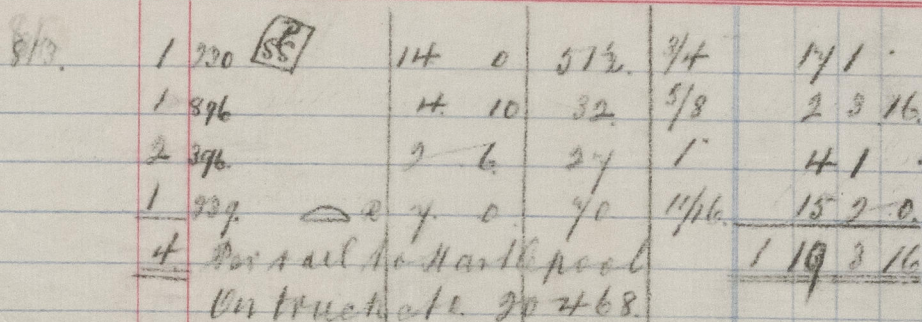 8/3. 1 230 P 55 14 0 51½. 3/4 17 1 .
1 896 4 10 32 5/8 2 3 16
2 396. 2 6 27 1" 4 1 .
1 239. 7 0 70 11/16. 15 2 0
4 Per rail to Hartlepool 1 19 3 16
On truck 20468.